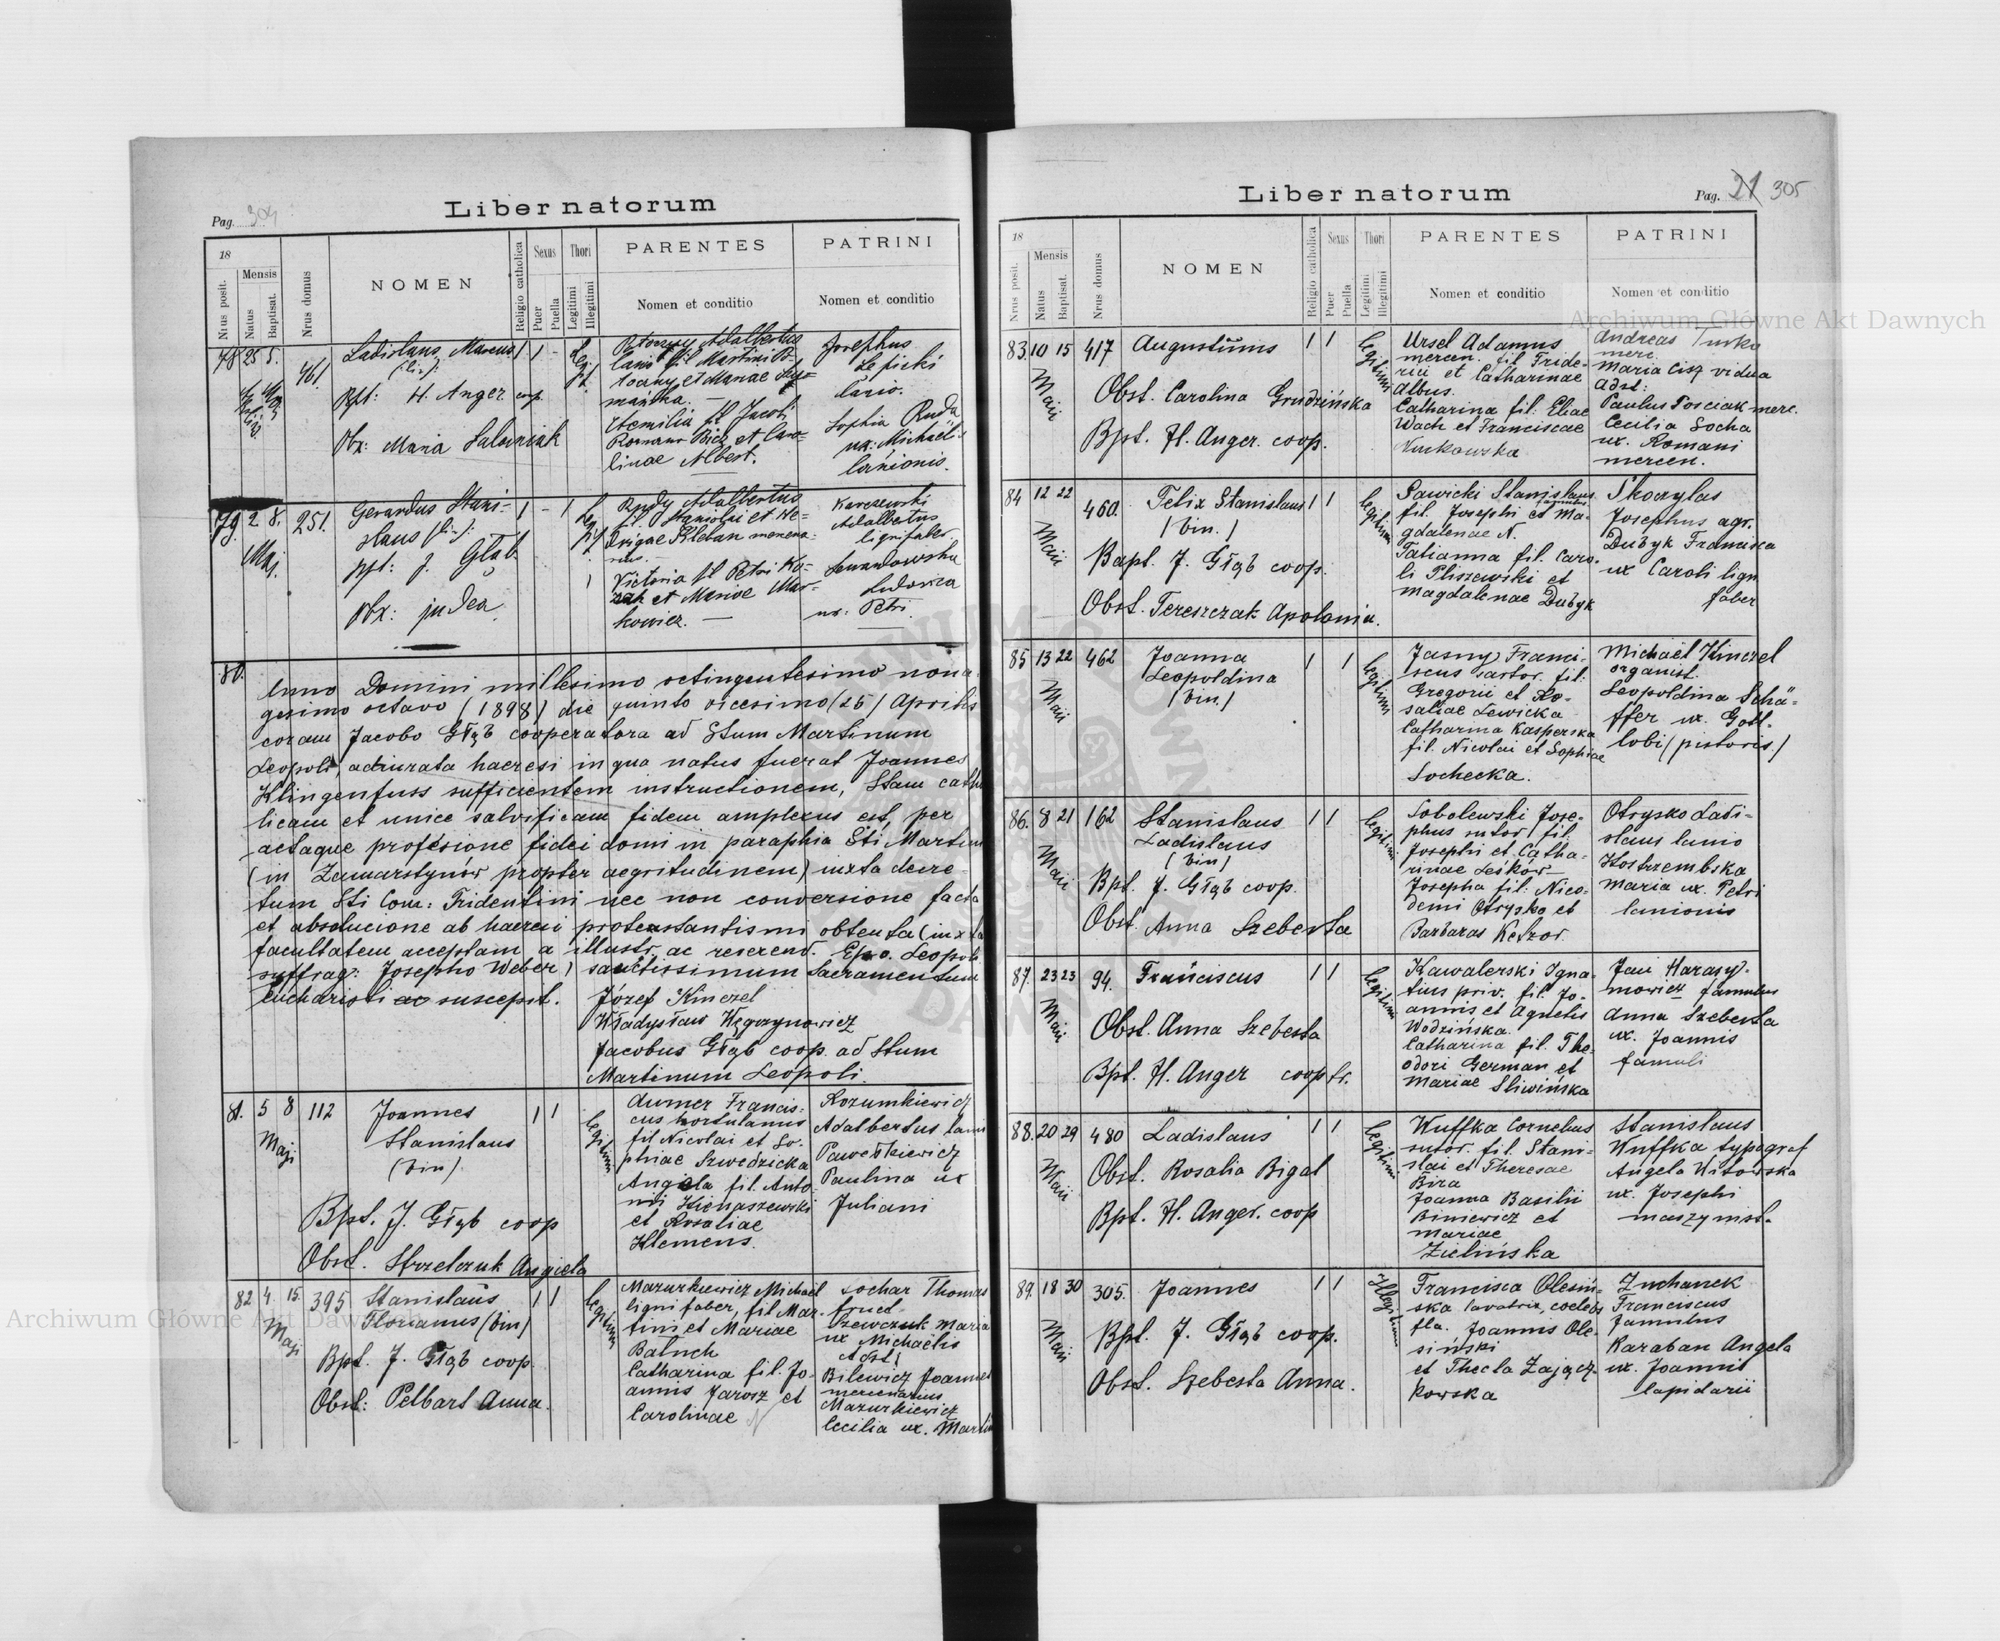 Liber natorum
Pag. 304
18
Nrus posit.
Mensis
Natus
Baptisat.
Nrus domus
NOMEN
Religio catholica
Sexus
Puer
Puella
Thori
Legitimi
Illegitimi
PARENTES
Nomen et conditio
PATRINI
Nomen et conditio
78 25 5.
461.
Ladislaus Marcus
(bin)
Bpt: H. Anger coop.
Obx: Maria
Adalbertus
fil. Martini
et Mariae
fil. Jacobi
et Caro-
linae Albert.
Josephus
Lepicki
Sophia Ruda
ux: Michaël
lanionis.
79. 2 8.
Maj.
251.
Gerardus Stani-
slaus (bin)
Bpt: J. Głąb
Obx: judea
Rudy Adalbertus
fil. Stanislai et He-
dvigae Pleban mercena-
rius.
Victoria fil Petri Ko-
zak et Mariae Mar-
kowicz. —
Karczewski
Adalbertus
lignifaber
Ludovica
ux: Petri
80.
Anno Domini millesimo octingentesimo nona
gesimo octavo (1898) die quinto vicesimo (25) Aprilis
coram Jacobo Głąb cooperatora ad Stum Martinum
Leopoli, adiurata haeresi in qua natus fuerat Joannes
Klingenfuss sufficientem instructionem, Stam catho
licam et unice salvificam fidem amplexus est, per
actaque profesione fidei domi in paraphia Sti Martini
(in Zamarstynów propter aegritudinem) iuxta decre-
tum Sti Con: Tridentini nec non conversione facta
et absolucione ab haeresi protestantismi obtenta (inxta
facultatem acceptam a illustr. ac reserend. Epo. Leopoli
suffrag: Josepho Weber) sanctissimum Sacramentum
Eucharisti ac suscepit.
Józef Kinczel
Władysław Węgrzynowicz
Jacobus Głąb coop. ad Stum
Martinum Leopoli.
81. 5 8 112
Maji
Joannes
Stanislaus
(bin)
Bpt. J. Głąb coop
Obst. Strzelczuk Angiela
Legitimi
Aumer Francis-
cus hortulanus
fil Nicolai et So-
phiae Szwedzicka
Angela fil. Anto-
nii Kienaszewski
et Rosaliae
Klemens.
Rozumkiewicz
Adalbertus lanio
Pawełkiewicz
Paulina ux
Juliani
82 4. 15. 395
Maji
Stanislaus
Florianus (bin)
Bpt. J. Głąb coop.
Obst: Pelbart Anna.
Legitimi
Mazurkiewicz Michaël
ligni faber, fil. Mar-
tini et Mariae
Batuch
Catharina fil. Jo-
annis Jarosz et
Carolinae N
Sochar Thomas
Szewczuk Maria
ux Michaëlis
Adst:
Bilewicz Joannes
mercenarius
Mazurkiewicz
Cecilia ux. Martin
Liber natorum
Pag. 21 305
18
Nrus posit.
Mensis
Natus
Baptisat.
Nrus domus
NOMEN
Religio catholica
Sexus
Puer
Puella
Thori
Legitimi
Illegitimi
PARENTES
Nomen et conditio
PATRINI
Nomen et conditio
83. 10 15 417
Maii
Augustinus
Obst. Carolina Grudzińska
Bpt. H. Anger. coop.
Legitimi
Ursel Adamus
mercen. fil Fride-
rici et Catharinae
Albus.
Catharina fil: Eliae
Wach et Franciscae
Nurkowska
Andreas Turko
merc.
Maria Cisz vidua
Adst:
Paulus Posciak merc.
Cecilia Socha
ux. Romani
mercen.
84 12 22
Maii
460.
Felix Stanislaus
(bin.)
Bapt. J. Głąb coop.
Obst. Tereszczak Apolonia.
Legitimi
Sawicki Stanislaus
famulus
fil. Josephi et Ma-
gdalenae N.
Tatianna fil. Caro-
li Pliszewski et
Magdalenae Dubyk
Skoczylas
Josephus agr.
Dubyk Francisca
ux Caroli lign
faber
85 13 22 462
Maii
Joanna
Leopoldina
(bin.)
Legitimi
Jasny Franci-
scus sartor. fil.
Gregorii et Ro-
saliae Lewicka
Catharina Kasperska
fil. Nicolai et Sophiae
Sochecka.
Michaël Kinczel
organist.
Leopoldina Schä-
ffer ux. Gott-
lobi (pistoris)
86. 8 21 162
Maii
Stanislaus
Ladislaus
(bin)
Bpt. J. Głąb coop.
Obst. Anna Szebesta
Legitimi
Sobolewski Jose-
phus sutor fil.
Josephi et Catha-
rinae Leśków
Josepha fil: Nico-
demi Otrysko et
Barbaras Keszor.
Otrysko Ladi-
slaus lanio
Kostrzembska
Maria ux. Petri
lanionis
87. 23 23 94.
Maii
Franciscus
Obst. Anna Szebesta
Bpt. H. Anger cooptr.
Legitimi
Kawalerski Igna-
tius priv. fil. Jo-
annis et Agnetis
Wodzińska.
Catharina fil. The-
odori German et
Mariae Sliwińska
Jan Harasy-
mowicz famulus
Anna Szebesta
ux. Joannis
famuli
88. 20 29 480
Maii
Ladislaus
Obst. Rosalia Bigal
Bpt. H. Anger. coop
Legitimi
Wuffka Cornelius
sutor. fil. Stani-
slai et Theresae
Bira
Joanna Basilii
Biniewicz et
Mariae
Zielińska
Stanislaus
Wuffka typograf
Angela Witowska
ux. Josephi
maszynist.
89. 18 30 305.
Maii
Joannes
Bpt. J. Głąb coop.
Obst. Szebesta Anna.
Illegitimi
Francisca Olesiń-
ska lavatrix, coelebs
fla. Joannis Ole-
siński
et Thecla Zającz-
kowska
Zuchanek
Franciscus
famulus
Karaban Angela
ux. Joannis
lapidarii
Archiwum Główne Akt Dawnych
Archiwum Główne Akt Dawnych